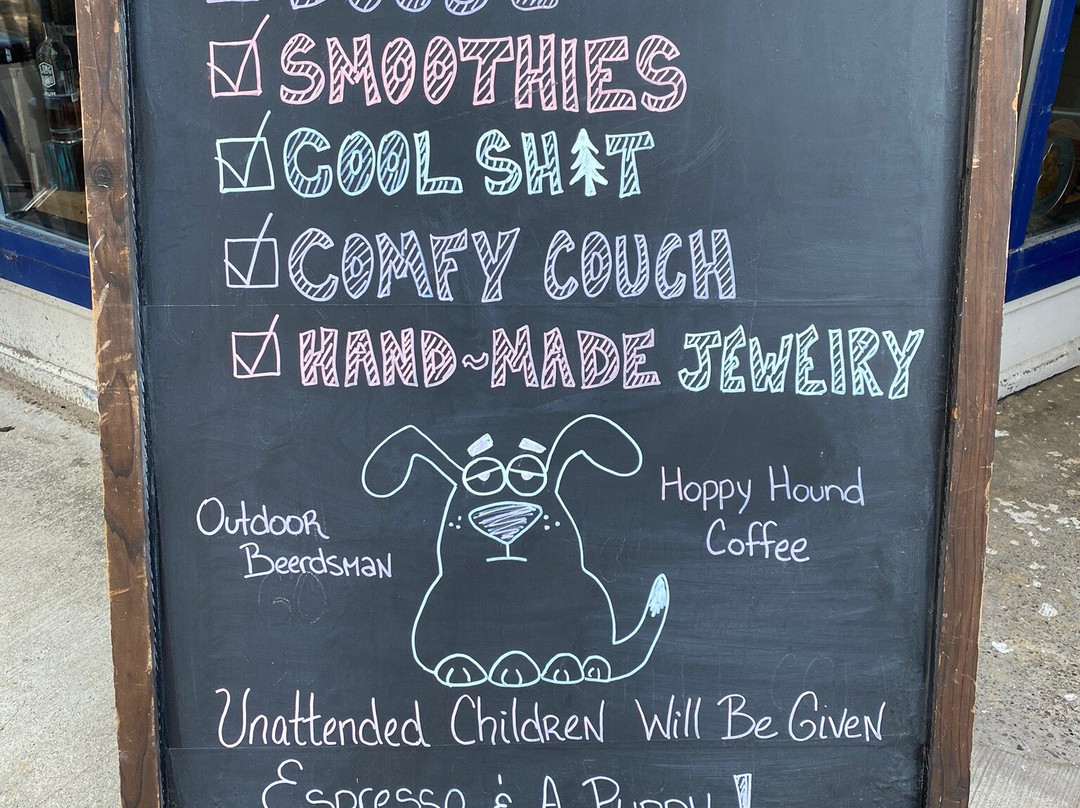 ☑ SMOOTHIES
☑ COOL SH🌲T
☑ COMFY COUCH
☑ HAND~MADE JEWElRY
Outdoor
Beerdsman
Hoppy Hound
Coffee
Unattended Children Will Be Given
Espresso & A Puppy!